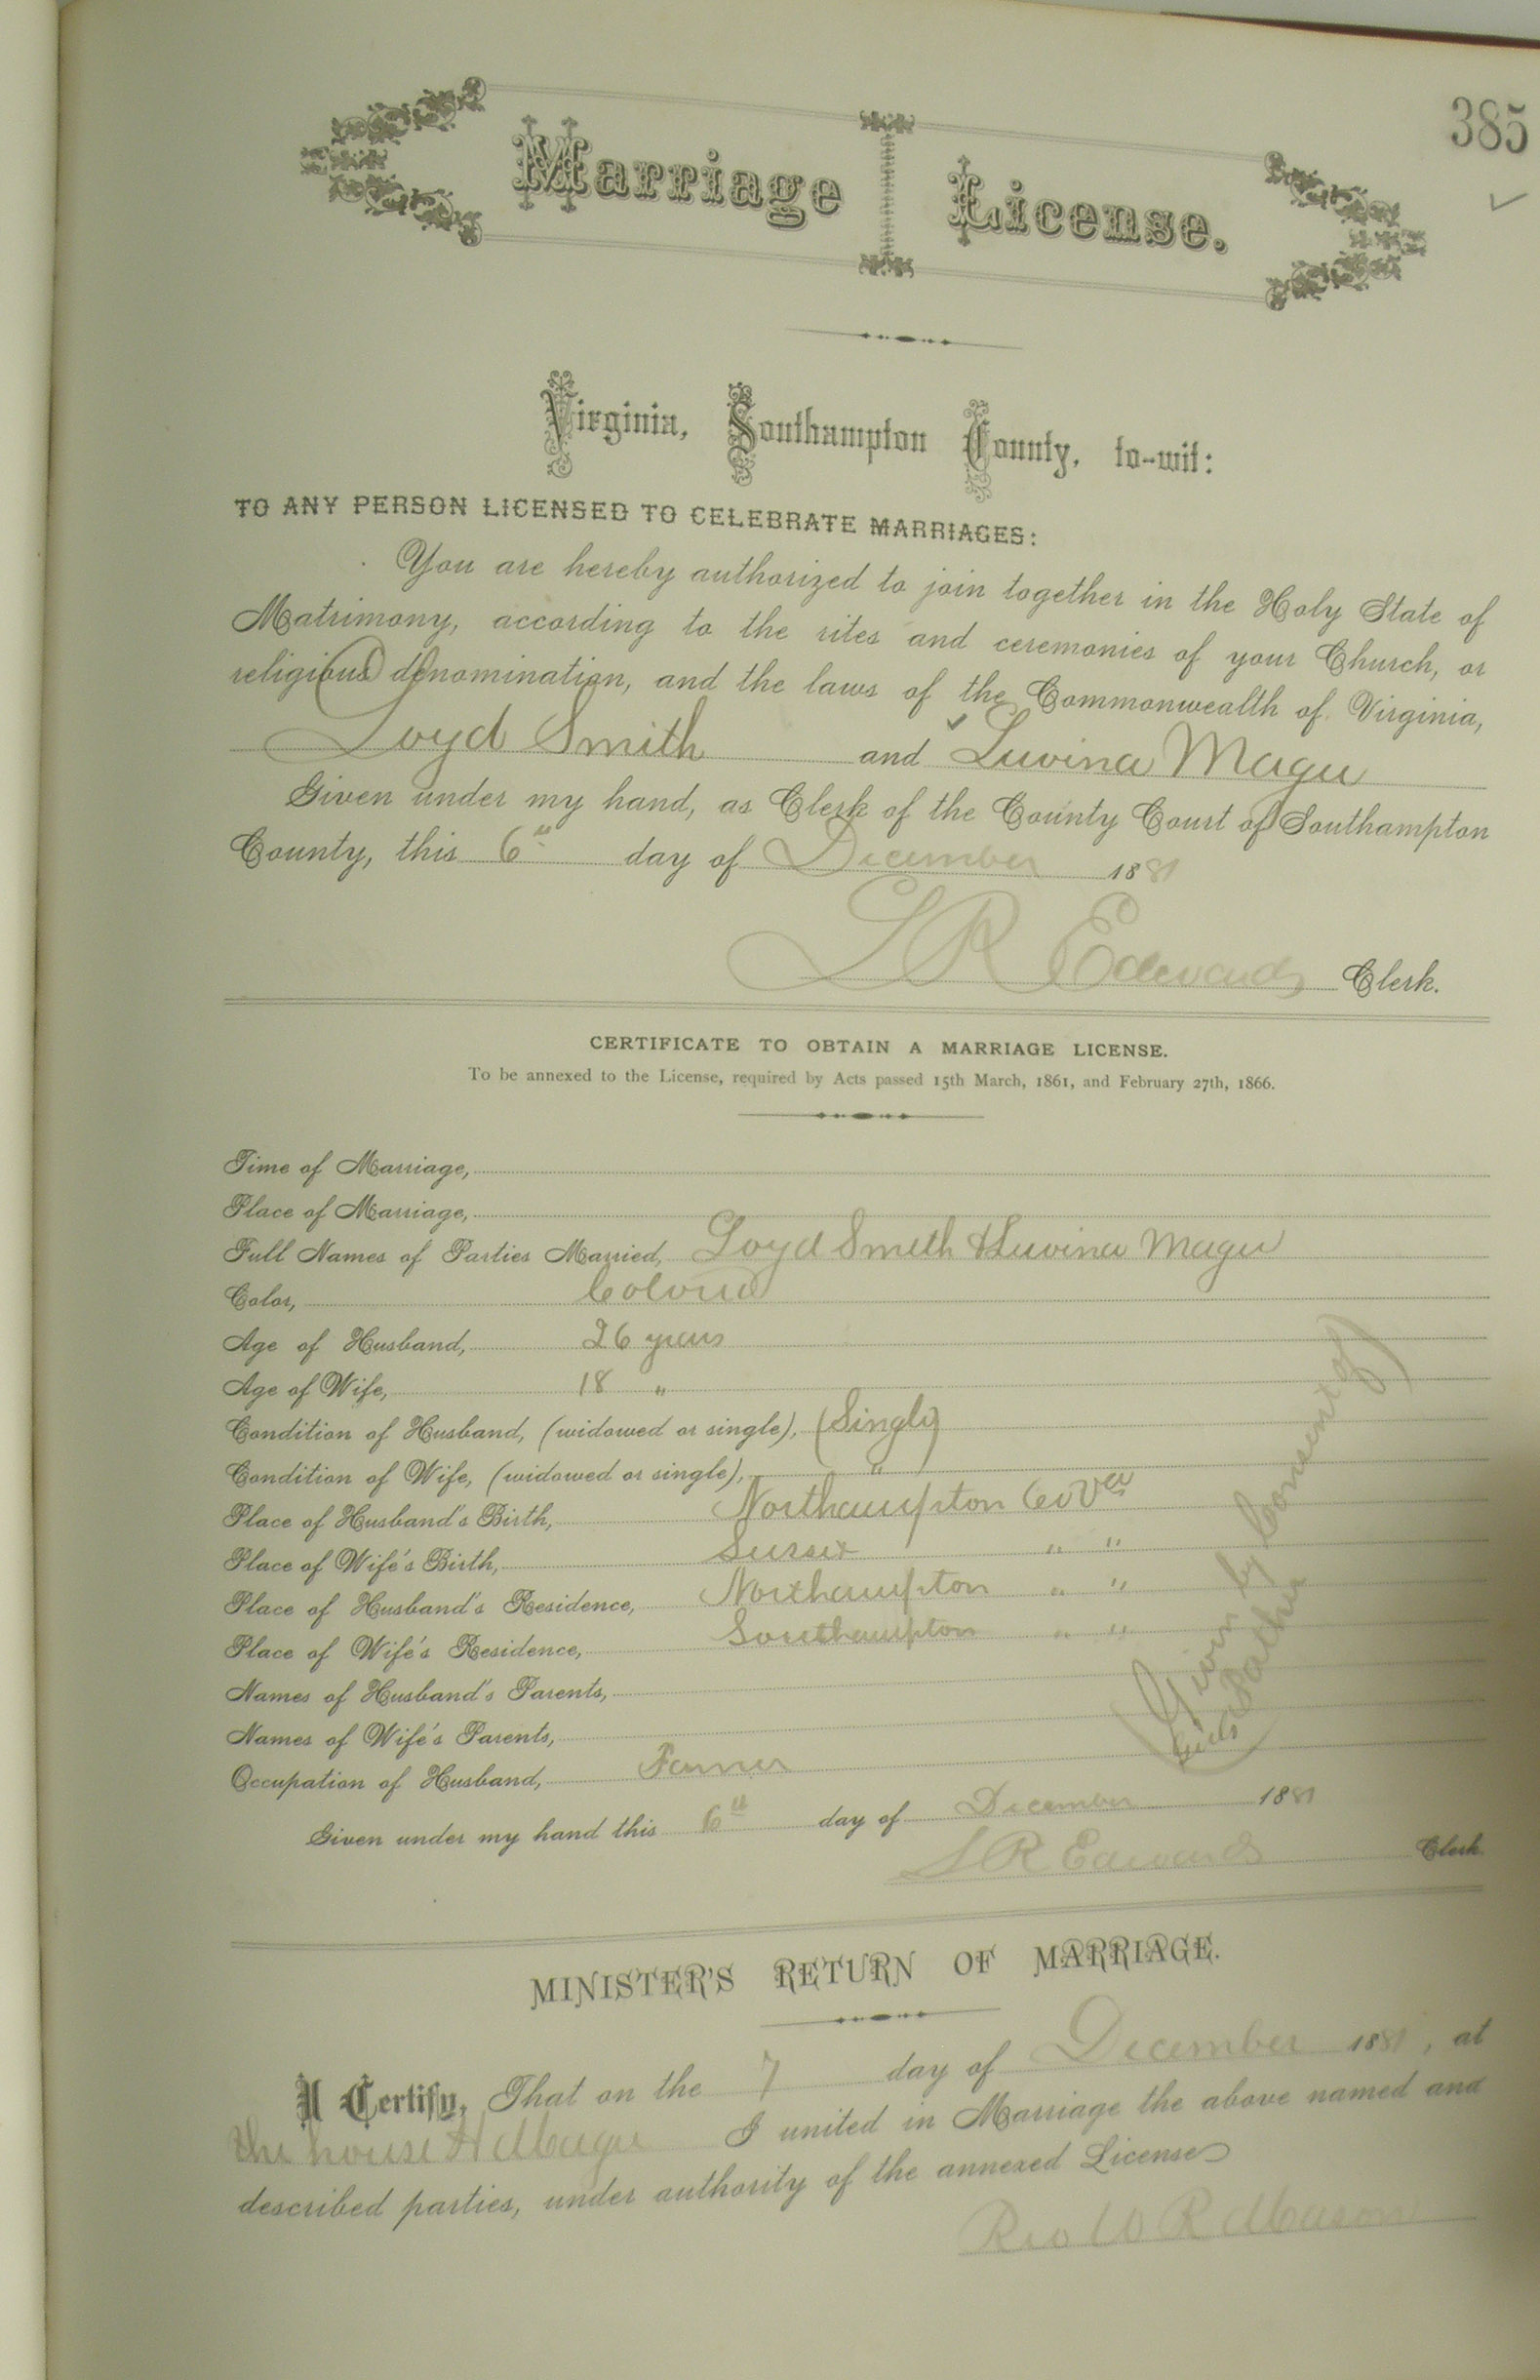 385
Marriage License.
Virginia, Southampton County, to-wit:
TO ANY PERSON LICENSED TO CELEBRATE MARRIAGES:
You are hereby authorized to join together in the Holy State of
Matrimony, according to the rites and ceremonies of your Church, or
religious denomination, and the laws of the Commonwealth of Virginia,
Loyd Smith and Luvina Magee
Given under my hand, as Clerk of the County Court of Southampton
County, this 6th day of December 1881
L R Edwards Clerk.
CERTIFICATE TO OBTAIN A MARRIAGE LICENSE.
To be annexed to the License, required by Acts passed 15th March, 1861, and February 27th, 1866.
Time of Marriage,
Place of Marriage,
Full Names of Parties Married, Loyd Smith & Luvina Magee
Color, Colored
Age of Husband, 26 years
Age of Wife, 18 "
Condition of Husband, (widowed or single), (Single)
Condition of Wife, (widowed or single), "
Place of Husband's Birth, Northampton Co Va
Place of Wife's Birth, Sussex " "
Place of Husband's Residence, Northampton " "
Place of Wife's Residence, Southampton " "
Names of Husband's Parents,
Names of Wife's Parents,
Occupation of Husband, Farmer
(Given by Consent of
Girls Father)
Given under my hand this 6th day of December 1881
L R Edwards Clerk
MINISTER'S RETURN OF MARRIAGE.
I Certify, That on the 7 day of December 1881, at
the house H Magee I united in Marriage the above named and
described parties, under authority of the annexed License
Rev W R Mason